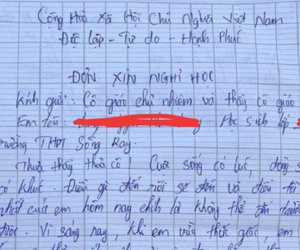 Cộng Hoà Xã Hội Chủ Nghĩa Việt Nam
Độc lập - Tự do - Hạnh Phúc
ĐƠN XIN NGHỈ HỌC
Kính gửi: Cô giáo chủ nhiệm và thầy cô giáo
Em tên: Học sinh lớp
trường THPT Sông Ray.
Thưa thầy thưa cô! Cuộc sống có lúc, dòng s
có khúc. Điều gì đến rồi sẽ đến và điều tồi
nhất của em hôm nay chính là không thể đến được
Vì sáng nay, khi em vừa thức giấc, em